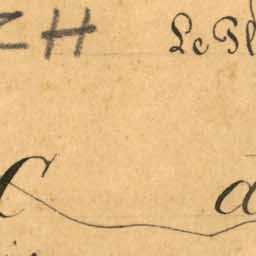 ZH Le Pl
C a